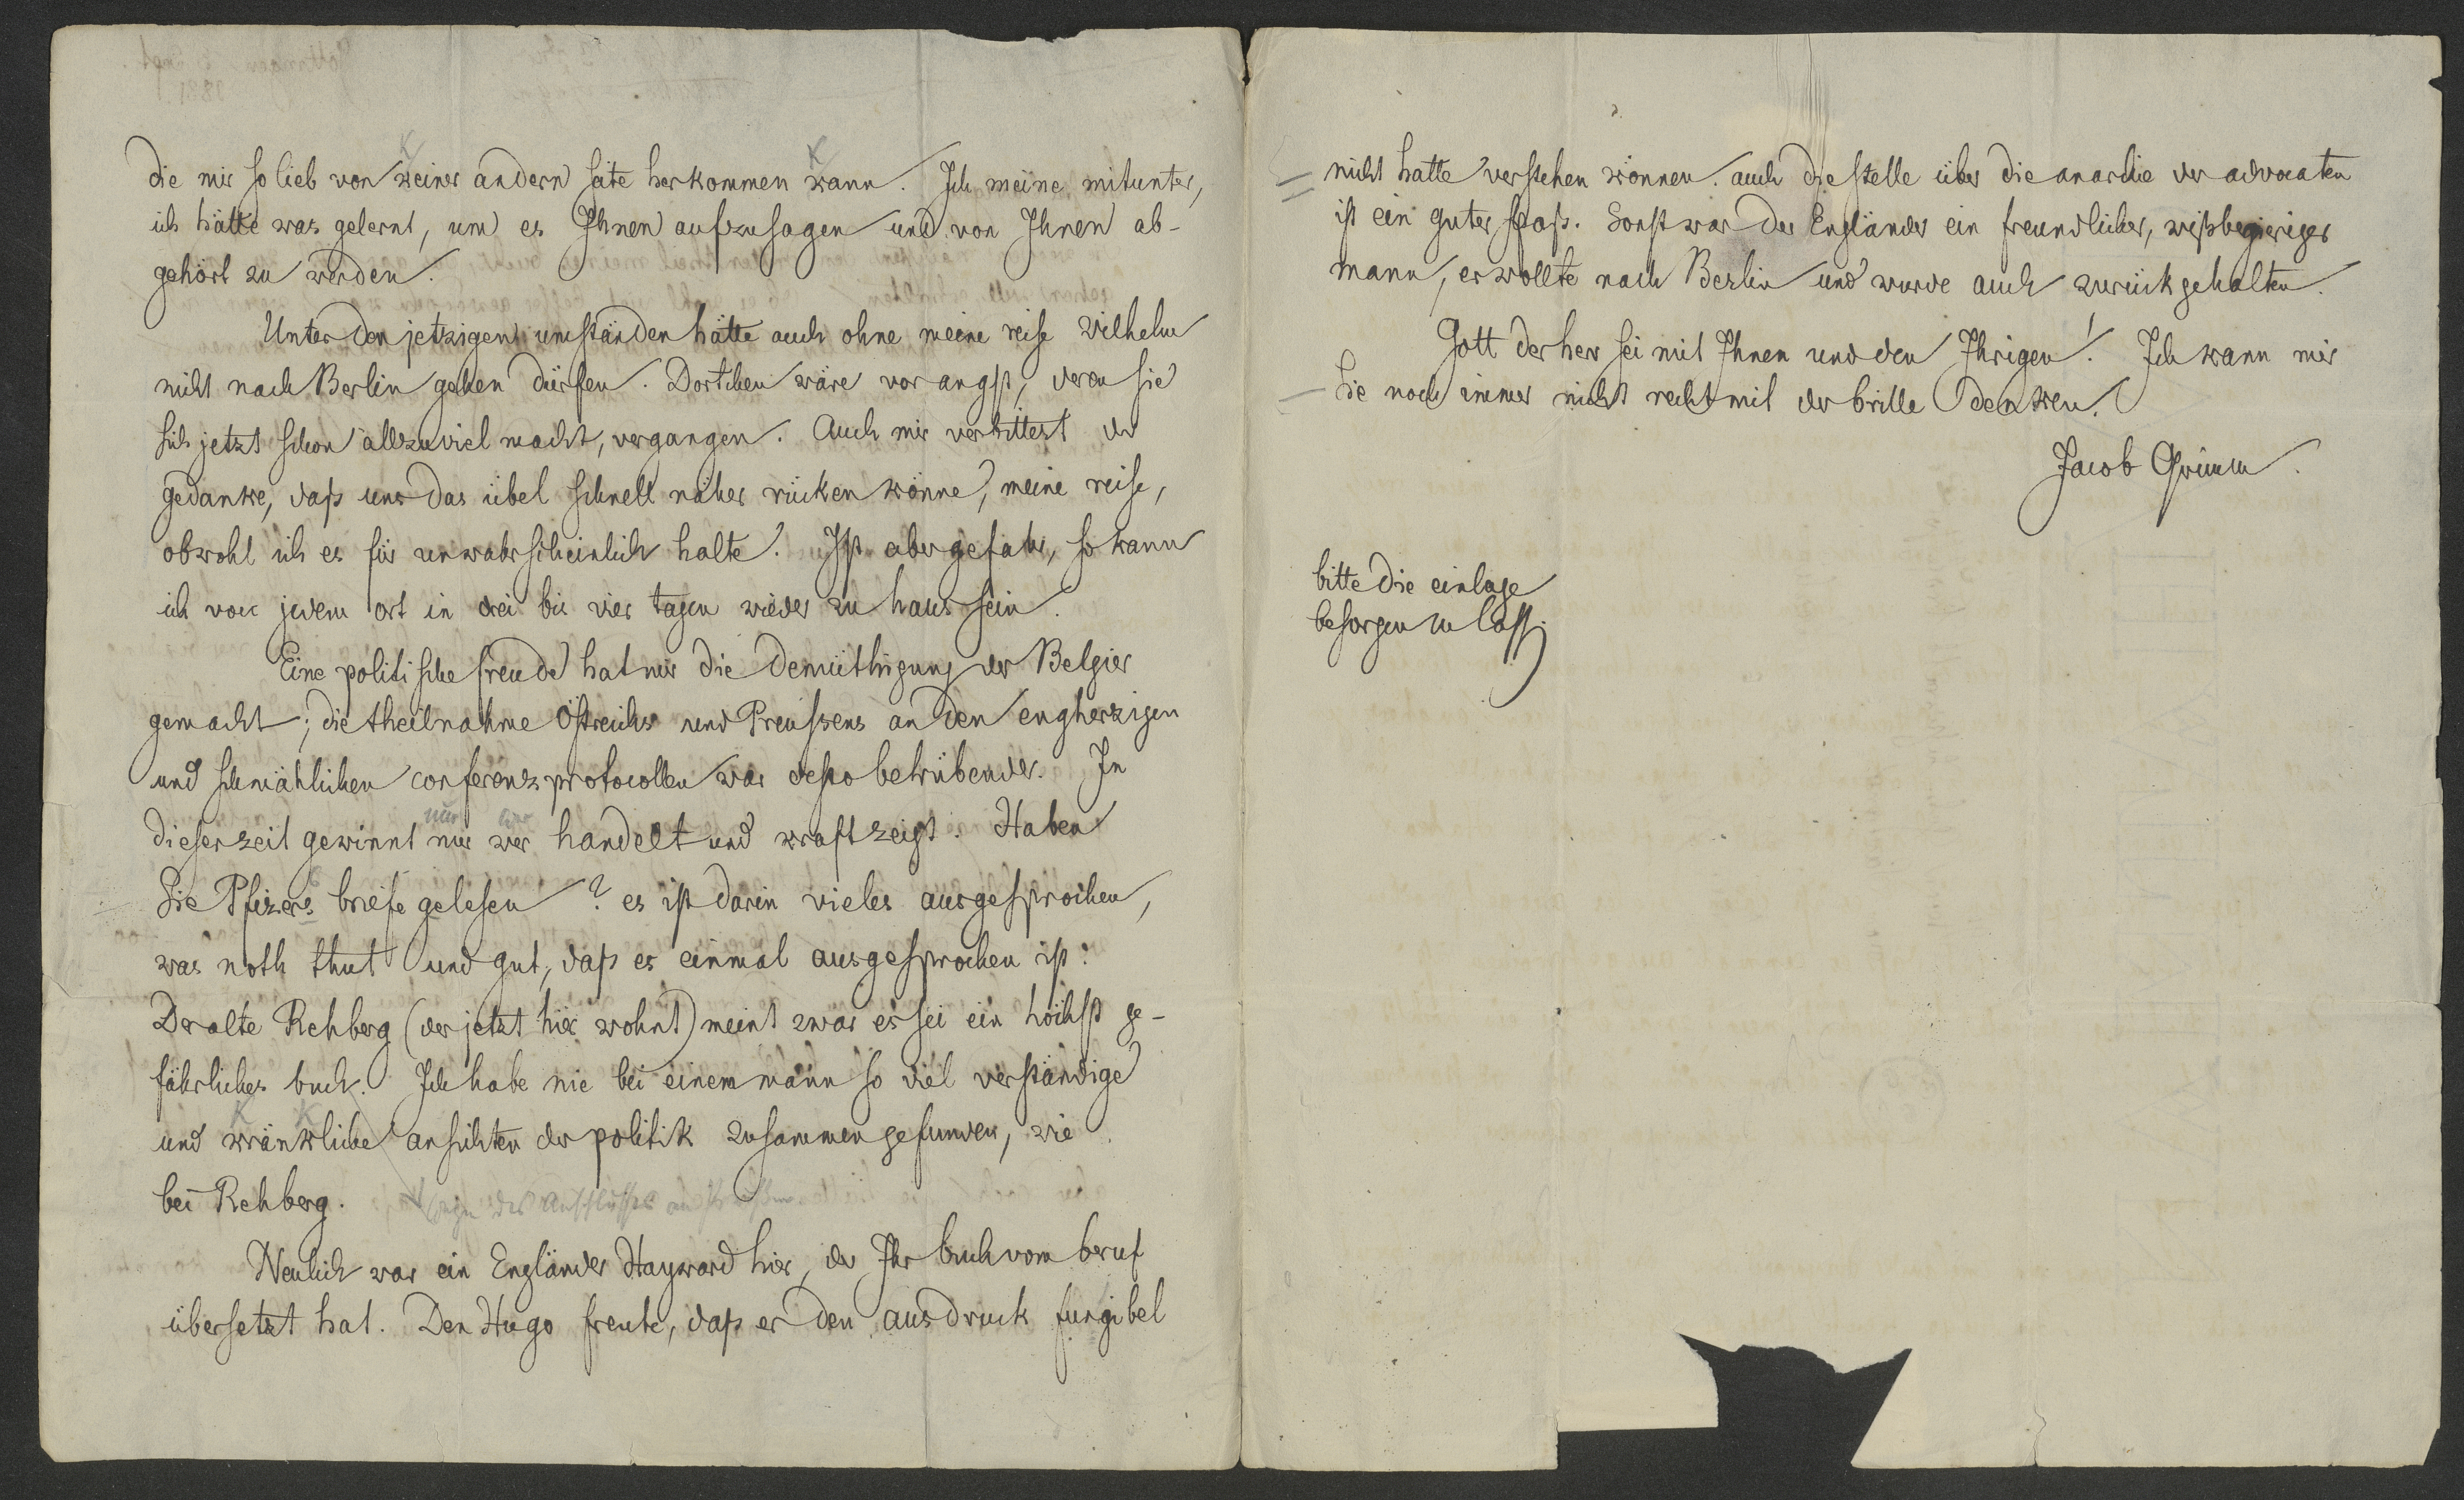 die mir so lieb von keiner andern seite herkommen kann. Ich meine mitunter,
ich hätte was gelernt, um es Ihnen aufzusagen und von Ihnen ab-
gehört zu werden.
Unter den jetzigen umständen hätte auch ohne meine reise Wilhelm
nicht nach Berlin gehen dürfen. Dortchen wäre vor angst, deren sie
sich jetzt schon allzuviel macht, vergangen. Auch mir verbittert der
gedanke, daß uns das übel schnell näher rücken könne, meine reise,
obwohl ich es für unwahrscheinlich halte. Ist aber gefahr, so kann
ich von jedem ort in drei bis vier tagen wieder zu haus sein.
Eine politische freude hat mir die demüthigung der Belgier
gemacht; die theilnahme Östreichs und Preußens an den engherzigen
und schmählichen conferenzprotocollen war desto betrübender. In
nur wer
dieser zeit gewinnt nur wer handelt und kraft zeigt. Haben
Sie Pfizers briefe gelesen? es ist darin vieles ausgesprochen,
was noth thut und gut, daß es einmal ausgesprochen ist.
Der alte Rehberg (der jetzt hier wohnt) meint zwar es sei ein höchst ge-
fährliches buch. Ich habe nie bei einem mann so viel verständige
und kränkliche ansichten der politik zusammen gefunden, wie
bei Rehberg.
wegen des Anschlusses an
Neulich war ein Engländer Hayward hier, der Ihr buch vom beruf
übersetzt hat. Den Hugo freute, daß er den ausdruck fungibel
nicht hatte verstehen können. auch die stelle über die anarchie der advocaten
ist ein guter spaß. Sonst war der Engländer ein freundlicher, wißbegieriger
mann, er wollte nach Berlin und wurde auch zurückgehalten.
Gott der herr sei mit Ihnen und den Ihrigen! Ich kann mir
Sie noch immer nicht recht mit der brille denken.
Jacob Grimm.
bitte die einlage
besorgen zu lass.